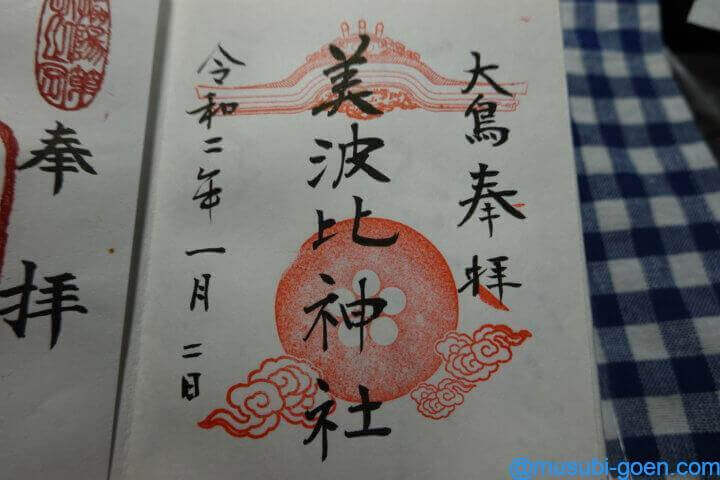 大鳥 奉拝
美波比神社
令和二年一月二日
奉拝
@musubi-goen.com